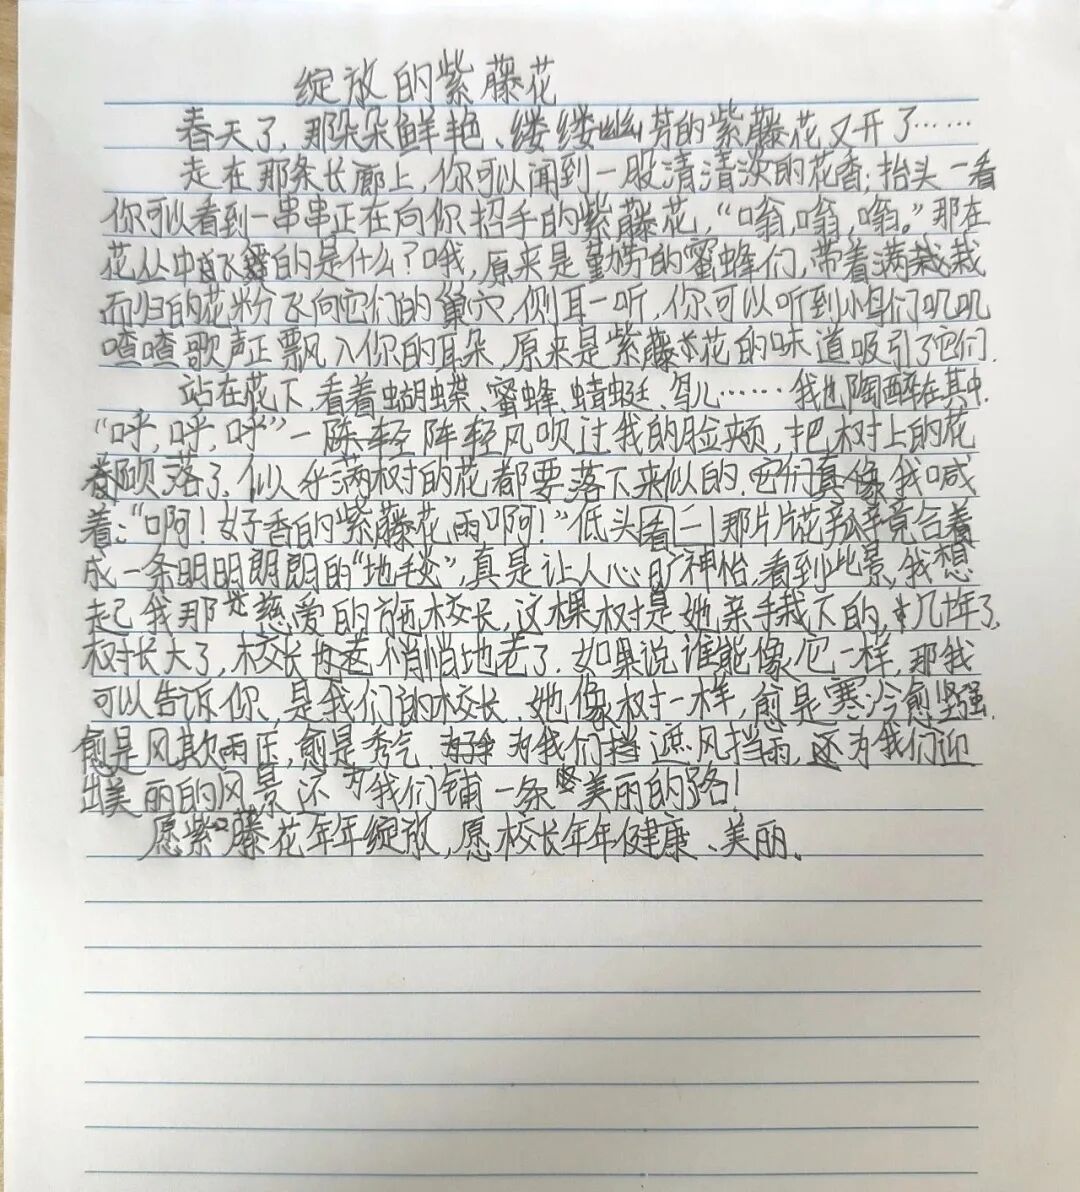 绽放的紫藤花
春天了,那朵朵鲜艳、缕缕幽芳的紫藤花又开了……
走在那条长廊上,你可以闻到一股清清淡的花香;抬头一看
你可以看到一串串正在向你招手的紫藤花,“嗡,嗡,嗡。”那在
花丛中飞的是什么?哦,原来是勤劳的蜜蜂们,带着满栽栽
而归的花粉飞向它们的巢穴,侧耳一听,你可以听到小鸟们叽叽
喳喳歌声正飘入你的耳朵,原来是紫藤花的味道吸引了它们.
站在花下,看着蝴蝶、蜜蜂、蜻蜓、鸟儿……我也陶醉在其中.
“呼,呼,呼”一阵轻阵轻风吹过我的脸颊,把树上的花
都吹落了,似乎满树的花都要落下来似的.它们真像我喊
着:“啊!好香的紫藤花雨啊!”低头看二那片片花竟合着
成一条明明朗朗的“地毯”,真是让人心旷神怡,看到此景,我想
起我那慈爱的施校长,这棵树是她亲手栽下的,几十年了,
树长大了,校长也悄悄地老了.如果说谁能像它一样,那我
可以告诉你,是我们的校长,她像树一样,愈是寒冷愈坚强.
愈是风欺雨压,愈是秀气 为我们遮风挡雨,还为我们迎
出美丽的风景还为我们铺一条美丽的路!
愿紫藤花年年绽放,愿校长年年健康、美丽.